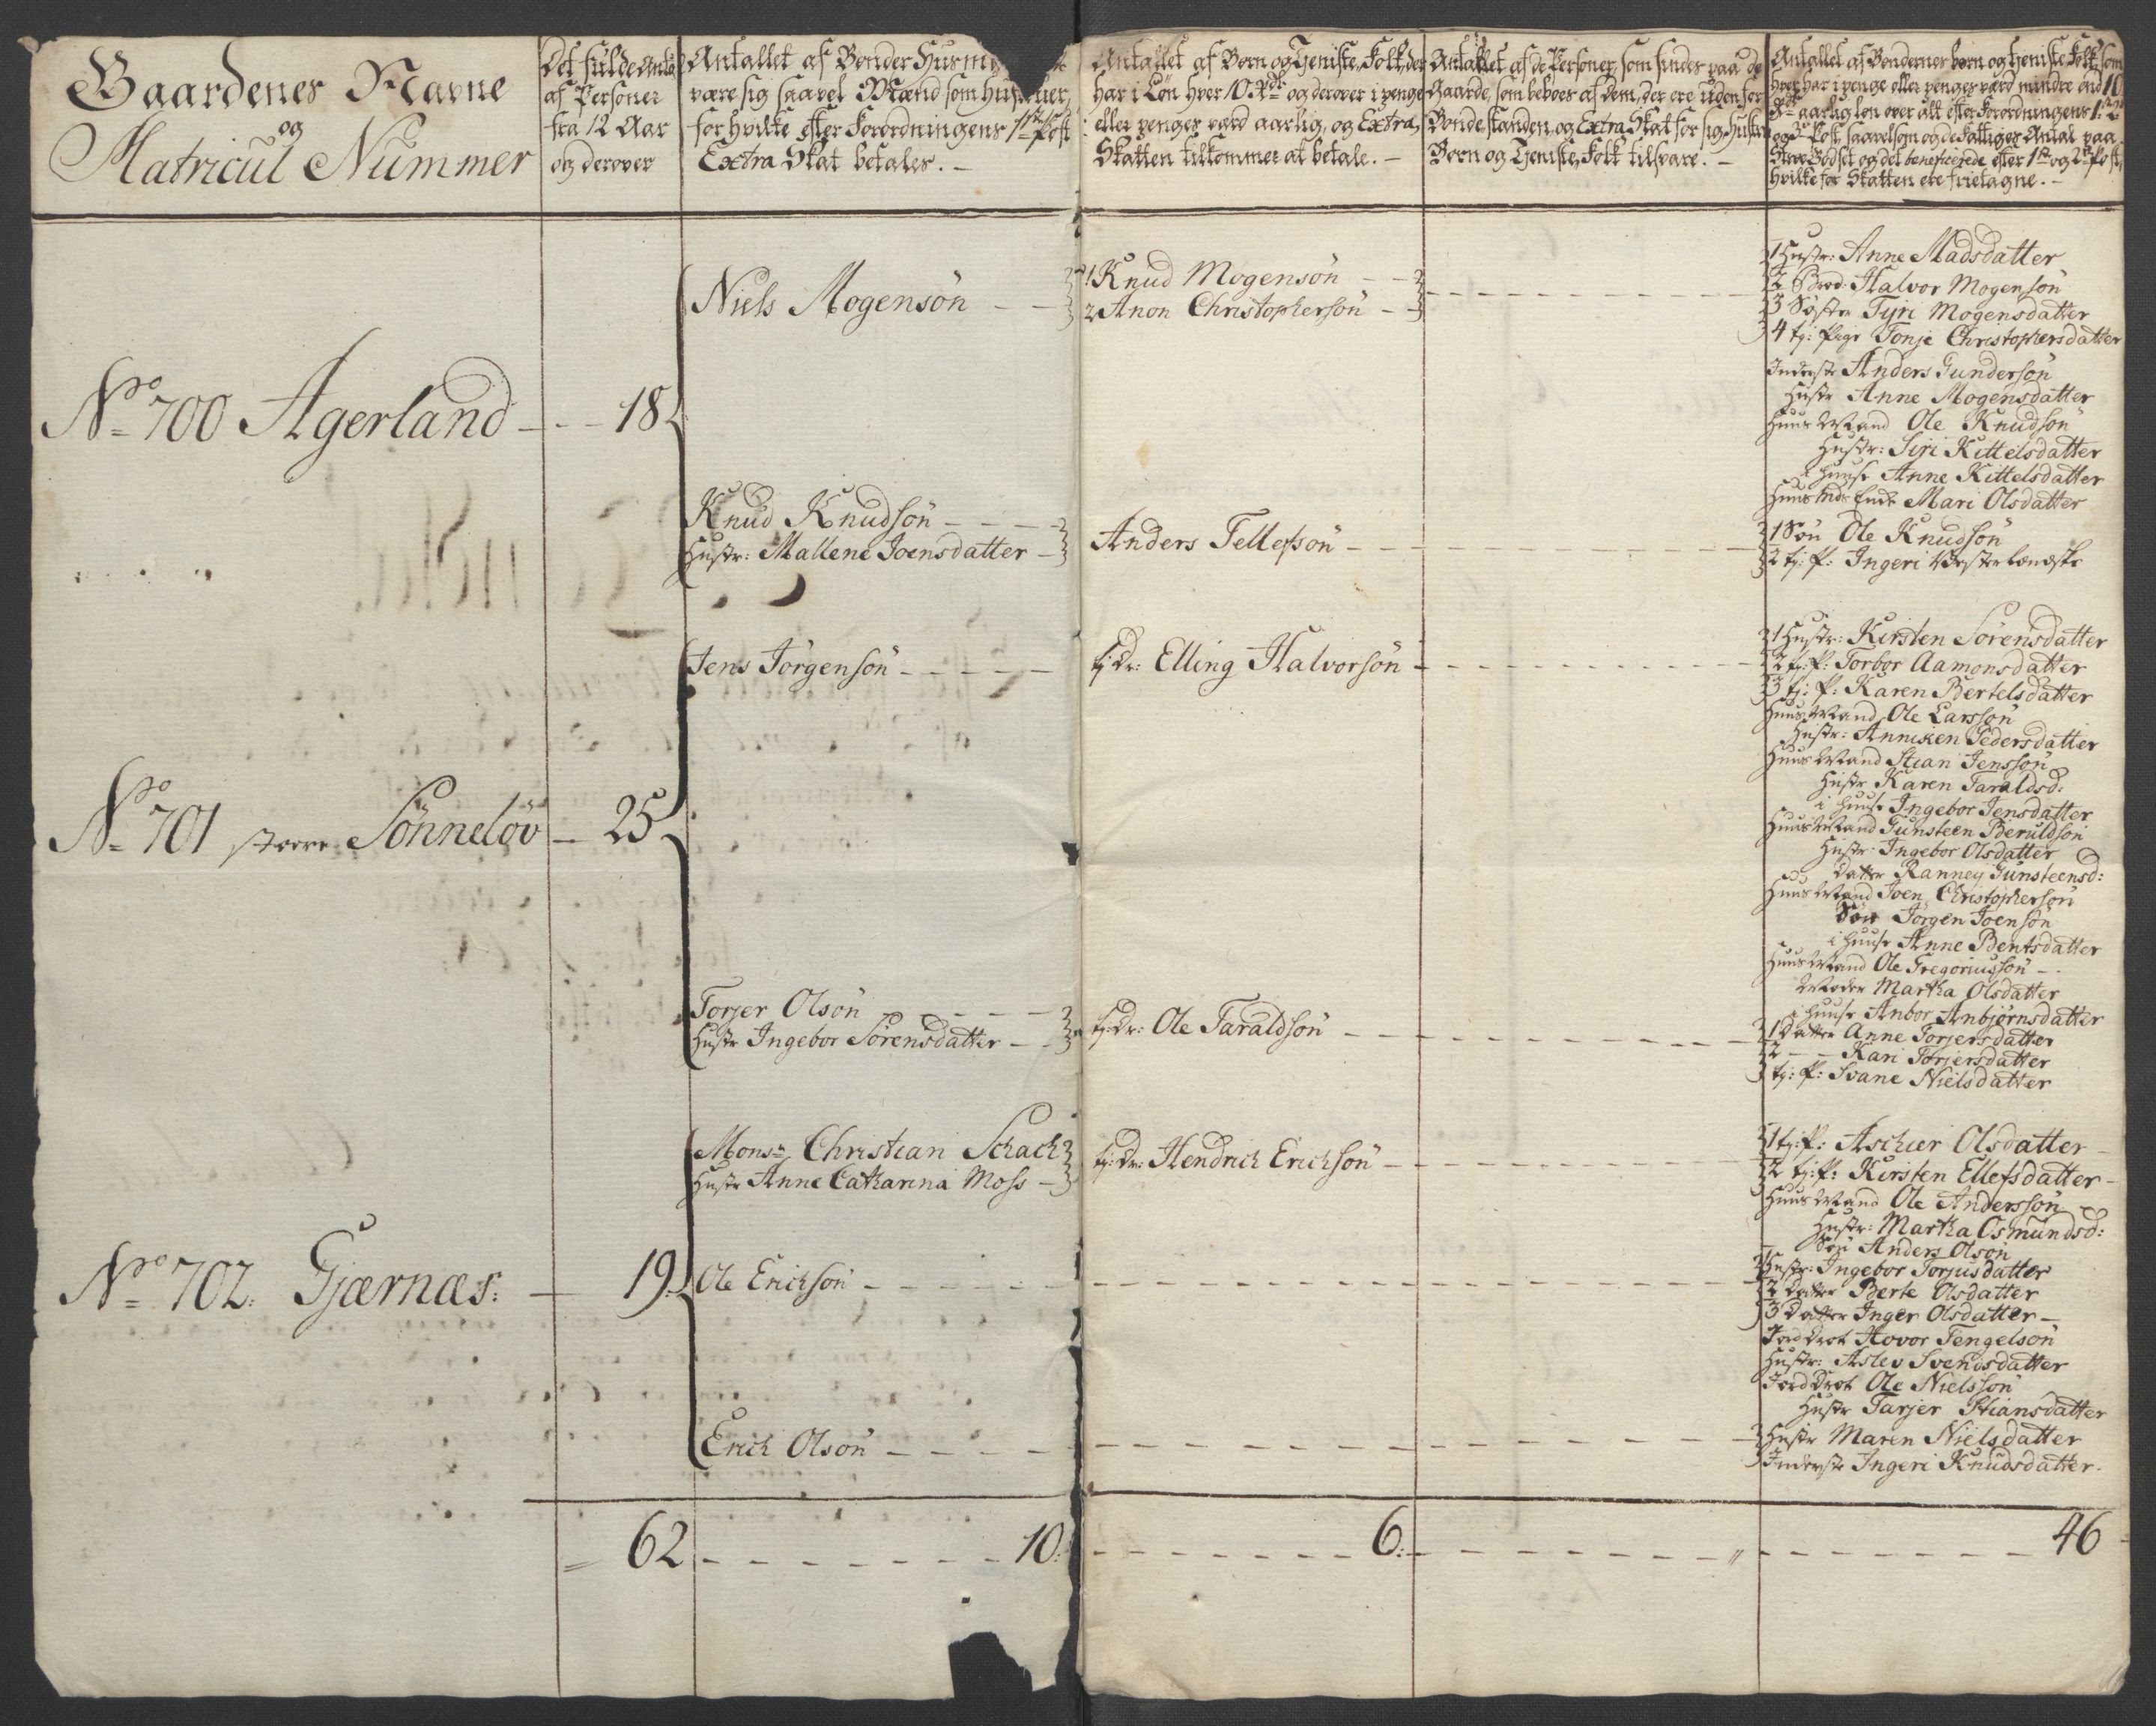 Gaardenes Navne
og
Matricul Nummer
Det fulde Antal
af Personer
fra 12 Aar
og derover
Antallet af Bønder Husm
være sig saavel Mænd som Hustruer,
for hvilke efter Forordningens 1ste Post
Extra Skat betales. –
Antallet af Børn og Tieniste Folk, der
har i Løn hver 10 Rdr og derover i penge
eller penges værd aarlig, og Extra
Skatten tilkommer at betale. –
Antallet af de Personer, som findes paa de
Gaarde, som beboes af dem, der ere uden for
Bondestanden, og Extra Skat for sig, Hustru
Børn og Tieniste Folk tilsvare. –
Antallet af Bøndernes børn og tieniste Folk, som
hver har i penge eller penges værd mindre end 10
Rdr aarlig løn over alt efter Forordningens 1ste 2den
og 3de Post, saavelsom og de Fattiges Antal paa
Godset og det beneficerede efter 1ste og 2den Post,
hvilke for Skatten ere frietagne. –
No 700 Agerland - - - 18
Niels Mogensön - -
1 Knud Mogensön - -
2 Anon Christophersön - -
1 Hustr: Anne Madsdatter
2 Brod: Halvor Mogensön
3 Söster Tyri Mogensdatter
4 tj: Pige Tonje Christophersdatter
Inderste Anders Gundersön
Hustr Anne Mogensdatter
Huus Mand Ole Knudsön
Hustr: Siri Kittelsdatter
i huuse Anne Kittelsdatter
Huus Mds Enke Mari Olsdatter
Knud Knudsön - - - -
Hustr: Mallene Joensdatter -
Anders Tellefsön -
1 Sön Ole Knudsön
2 tj: P: Ingeri Vesterlændske
No 701 store Sönnelöv - 25
Jens Jörgensön - - - - -
tj: Dr: Elling Halvorsön -
1 Hustr: Kirsten Sörensdatter
2 tj: P: Torbor Aamonsdatter
3 tj: P: Karen Bertelsdatter
Huus Mand Ole Larssön
Hustr: Anniken Pedersdatter
Huus Mand Stian Jenssön
Hustr Karen Taraldsd:
i huuse Ingebor Jensdatter
Huus Mand Gunsteen Beruldsön
Hustr: Ingebor Olsdatter
Datter Ranney Gunsteensd:
Huus Mand Joen Christophersön
Sön Jörgen Joensön
i huuse Anne Bentsdatter
Huus Mand Ole Gregoriussön -
Moder Martha Olsdatter
i huuse Anbor Anbjörnsdatter
Torjer Olsön - - - -
Hustr Ingebor Sörensdatter - -
tj: Dr: Ole Taraldsön -
1 Datter Anne Torjersdatter
2 - - Kari Torjersdatter
tj: P: Svane Nielsdatter
No 702. Gjærnæs: - 19.
Monsr Christian Schach
Hustr Anne Catharina Moss -
tj: Dr: Hendrich Erichsön -
1 tj: P: Aschier Olsdatter -
2 tj: P: Kirsten Ellefsdatter -
Huus Mand Ole Anderssön
Hustr: Martha Osmundsd:
Sön Anders Olsön
Ole Erichsön - - - - - -
1 Hustr: Ingebor Torjusdatter
2 Datter Berte Olsdatter
3 Datter Inger Olsdatter -
Hovor Tengelsön
Hustr: Aslev Svendsdatter
Ole Nielssön
Hustr Tarjer Stiansdatter
Erich Olsön - - - - -
Hustr Maren Nielsdatter
Inderste Ingeri Knudsdatter.
62 - - - - - - - - 10. - - - - - - - 6: - - - - - - - - " - - - - - - - - 46